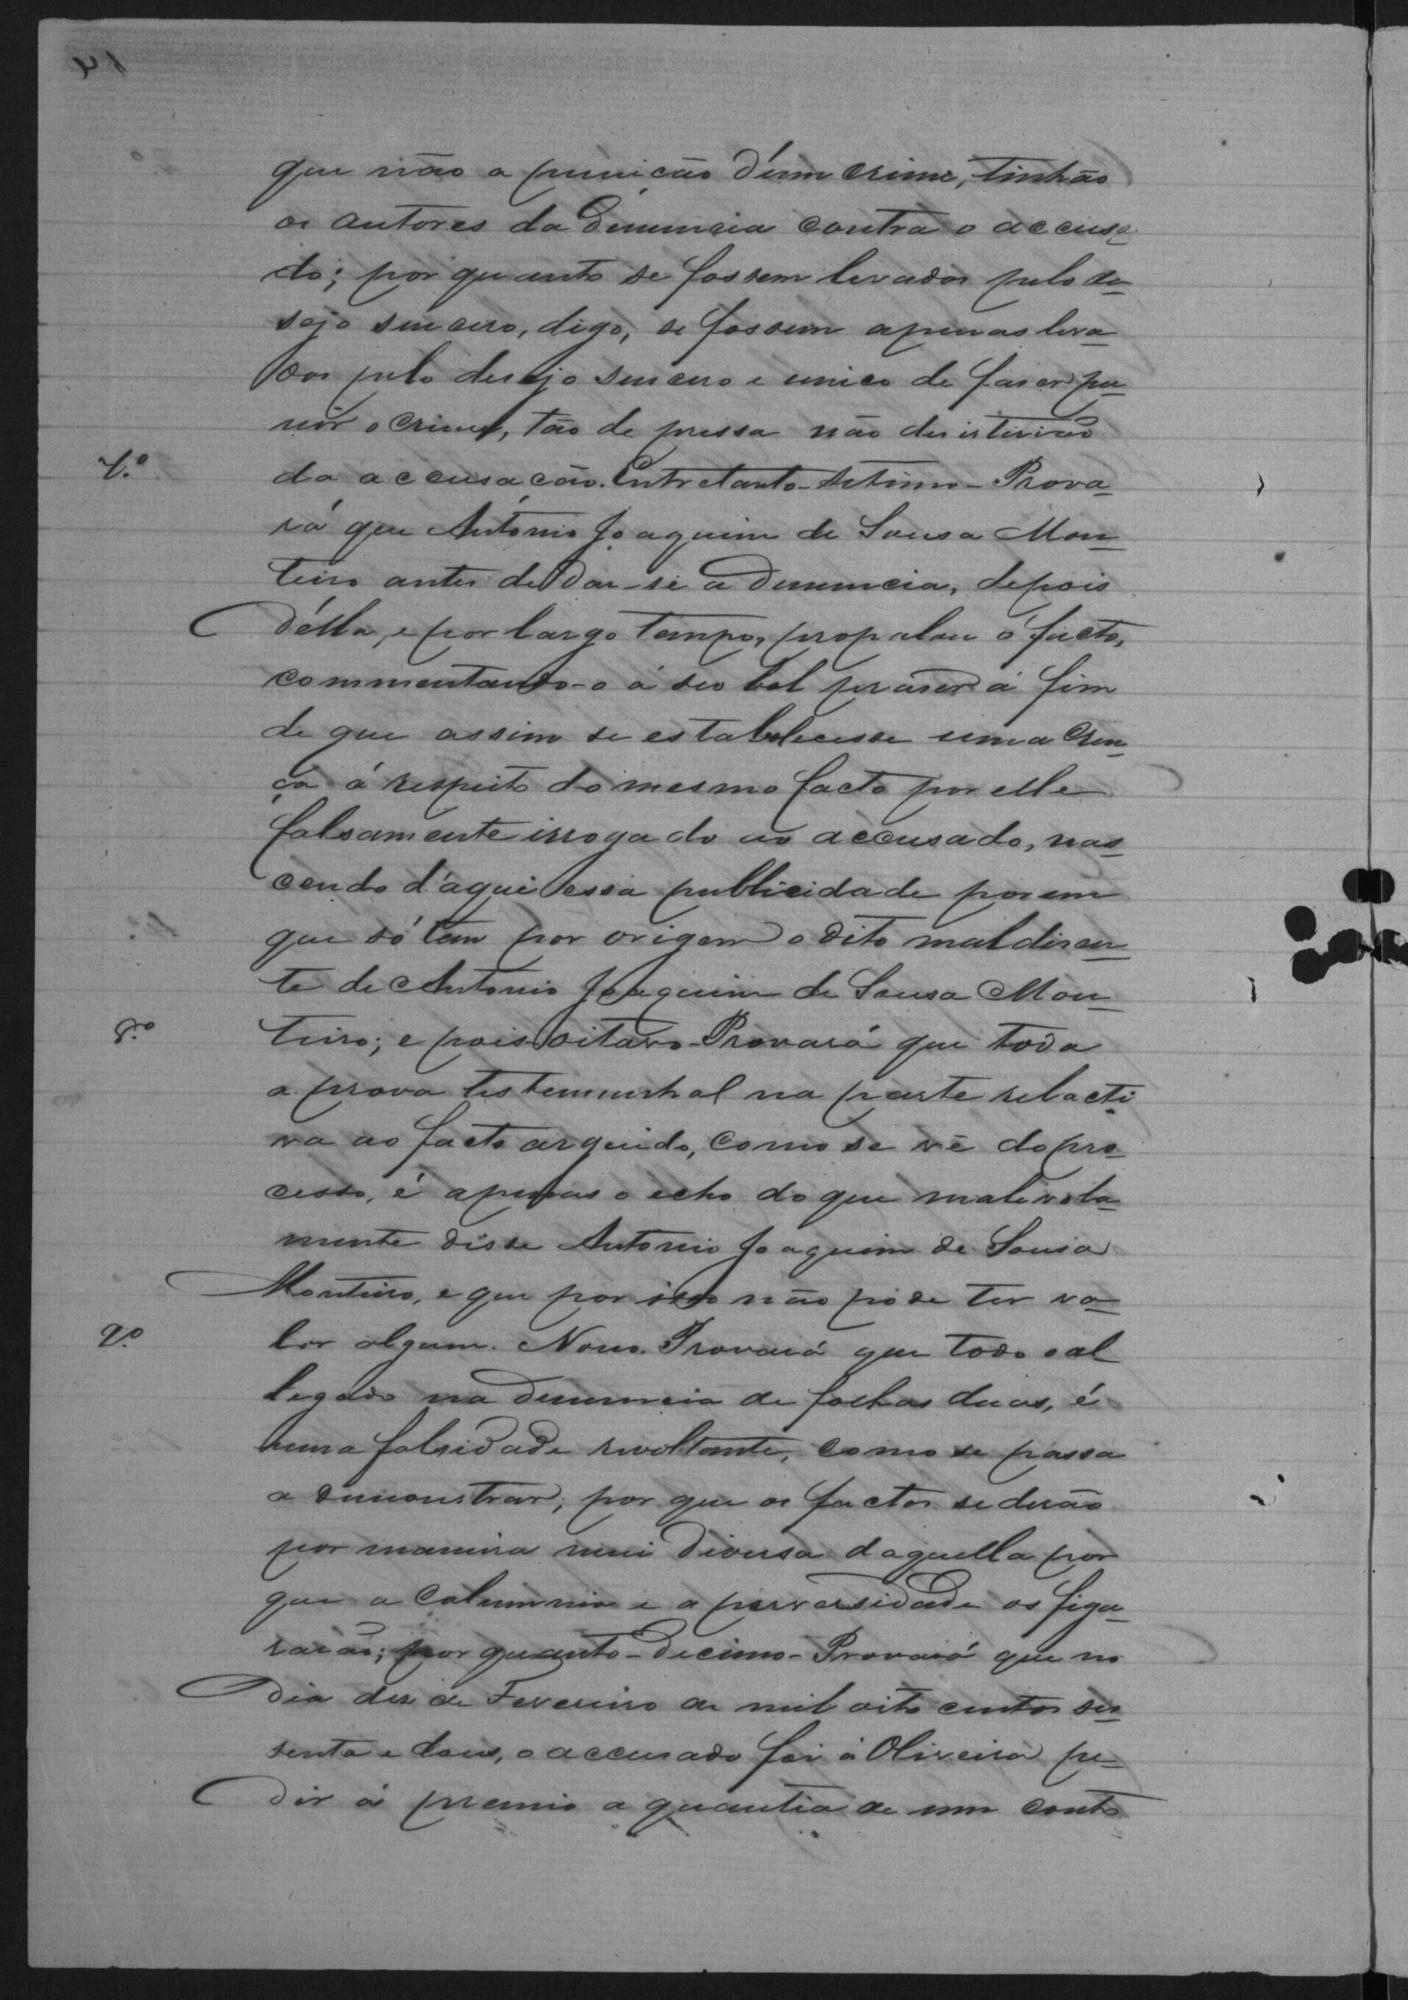 que não a punição d'um crime, tinhão
os autores da denuncia contra o accusa-
do; por quanto se fossem levados pelo de-
sejo sincero, digo, se fossem apenas leva-
dos pelo desejo sincero e unico de faser pu-
nir o crime, tão de pressa não desistirião
7.º da accusação. Entretanto - Setimo - Prova-
rá que Antonio Joaquim de Sousa Mon-
teiro antes de dar-se a denuncia, depois
d'élla, e por largo tempo, propalou o facto,
commentando-o á seo bel praser á fim
de que assim se estabelecesse uma cren-
ça á respeito do mesmo facto por elle
falsamente irrogado ao accusado, nas-
cendo d'aqui essa publicidade porem
que só tem por origem o dito maldisen-
te de Antonio Joaquim de Sousa Mon-
8.º teiro; e pois - oitavo - Provará que toda
a prova testemunhal na parte relacti
va ao facto arguido, como se vê do pro-
cesso, é apenas o echo do que malevola-
mente disse Antonio Joaquim de Sousa
Monteiro, e que por isso não póde ter va-
9.º lor algum. Nono. Provará que todo o al
legado na denuncia de folhas duas, é
uma falsidade revoltante, como se passa
a demonstrar; por que os factos se derão
por maneira mui diversa daquella por
que a calumnia e a perversidade os figu-
rarão; por quanto - Decimo - Provará que no
dia des de Fevereiro de mil oito centos ses-
senta e dous, o accusado foi á Oliveira pe-
dir á premio a quantia de um conto